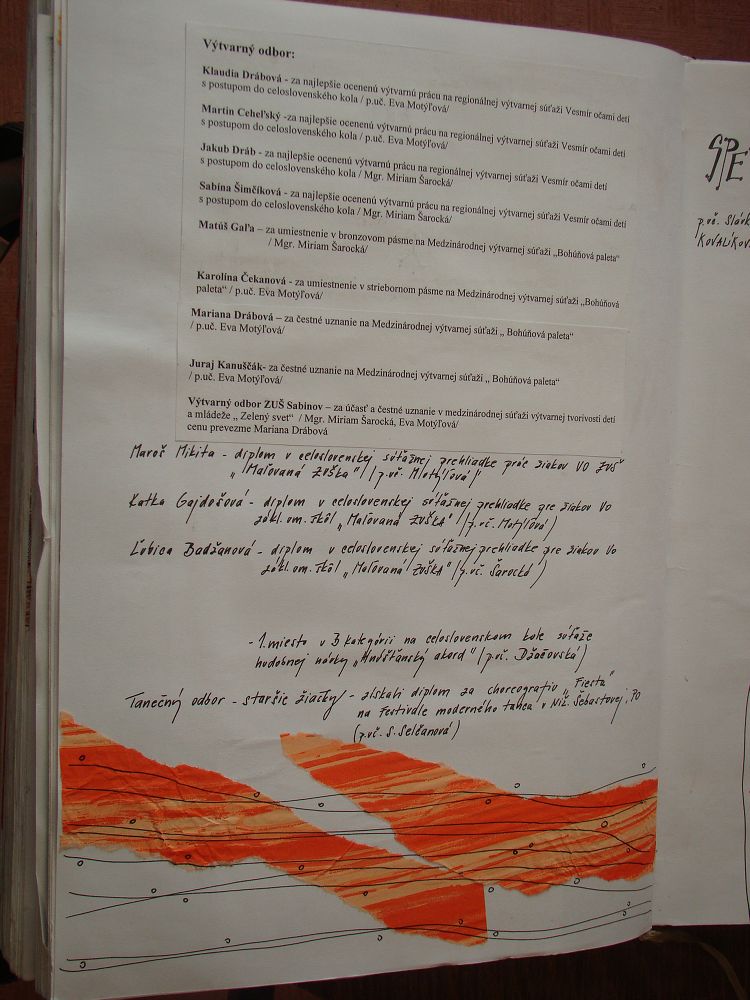 Výtvarný odbor:
Klaudia Drábová - za najlepšie ocenenú výtvarnú prácu na regionálnej výtvarnej súťaži Vesmír očami detí
s postupom do celoslovenského kola / p.uč. Eva Motýľová/
Martin Ceheľský -za najlepšie ocenenú výtvarnú prácu na regionálnej výtvarnej súťaži Vesmír očami detí
s postupom do celoslovenského kola / p.uč. Eva Motýľová/
Jakub Dráb - za najlepšie ocenenú výtvarnú prácu na regionálnej výtvarnej súťaži Vesmír očami detí
s postupom do celoslovenského kola / Mgr. Miriam Šarocká/
Sabína Šimčíková - za najlepšie ocenenú výtvarnú prácu na regionálnej výtvarnej súťaži Vesmír očami detí
s postupom do celoslovenského kola / Mgr. Miriam Šarocká/
Matúš Gaľa – za umiestnenie v bronzovom pásme na Medzinárodnej výtvarnej súťaži „Bohúňová paleta“
/ Mgr. Miriam Šarocká/
Karolína Čekanová - za umiestnenie v striebornom pásme na Medzinárodnej výtvarnej súťaži „Bohúňová
paleta“ / p.uč. Eva Motýľová/
Mariana Drábová – za čestné uznanie na Medzinárodnej výtvarnej súťaži „ Bohúňová paleta“
/ p.uč. Eva Motýľová/
Juraj Kanuščák- za čestné uznanie na Medzinárodnej výtvarnej súťaži „ Bohúňová paleta“
/ p.uč. Eva Motýľová/
Výtvarný odbor ZUŠ Sabinov – za účasť a čestné uznanie v medzinárodnej súťaži výtvarnej tvorivosti detí
a mládeže „ Zelený svet“ / Mgr. Miriam Šarocká, Eva Motýľová/
cenu prevezme Mariana Drábová
Maroš Mikita - diplom v celoslovenskej súťažnej prehliadke prác žiakov VO ZUŠ
„Maľovaná ZUŠka" /p.uč. Motýľová/
Katka Gajdošová - diplom v celoslovenskej súťažnej prehliadke pre žiakov VO
zákl. um. škôl „Maľovaná ZUŠKA" /p.uč. Motýľová)
Ľubica Badžanová - diplom v celoslovenskej súťažnej prehliadke pre žiakov VO
zákl. um. škôl „Maľovaná ZUŠKA" /p.uč. Šarocká)
- 1. miesto v B kategórii na celoslovenskom kole súťaže
hudobnej náuky „ akord" /p.uč. Džačovská)
Tanečný odbor - staršie žiačky - získali diplom za choreografiu „Fiesta"
na Festivale moderného tanca v Niž. Šebastovej, PO
(p.uč. S. Selčanová)
SPE
p.uč. Slávk
KOVALÍKOV